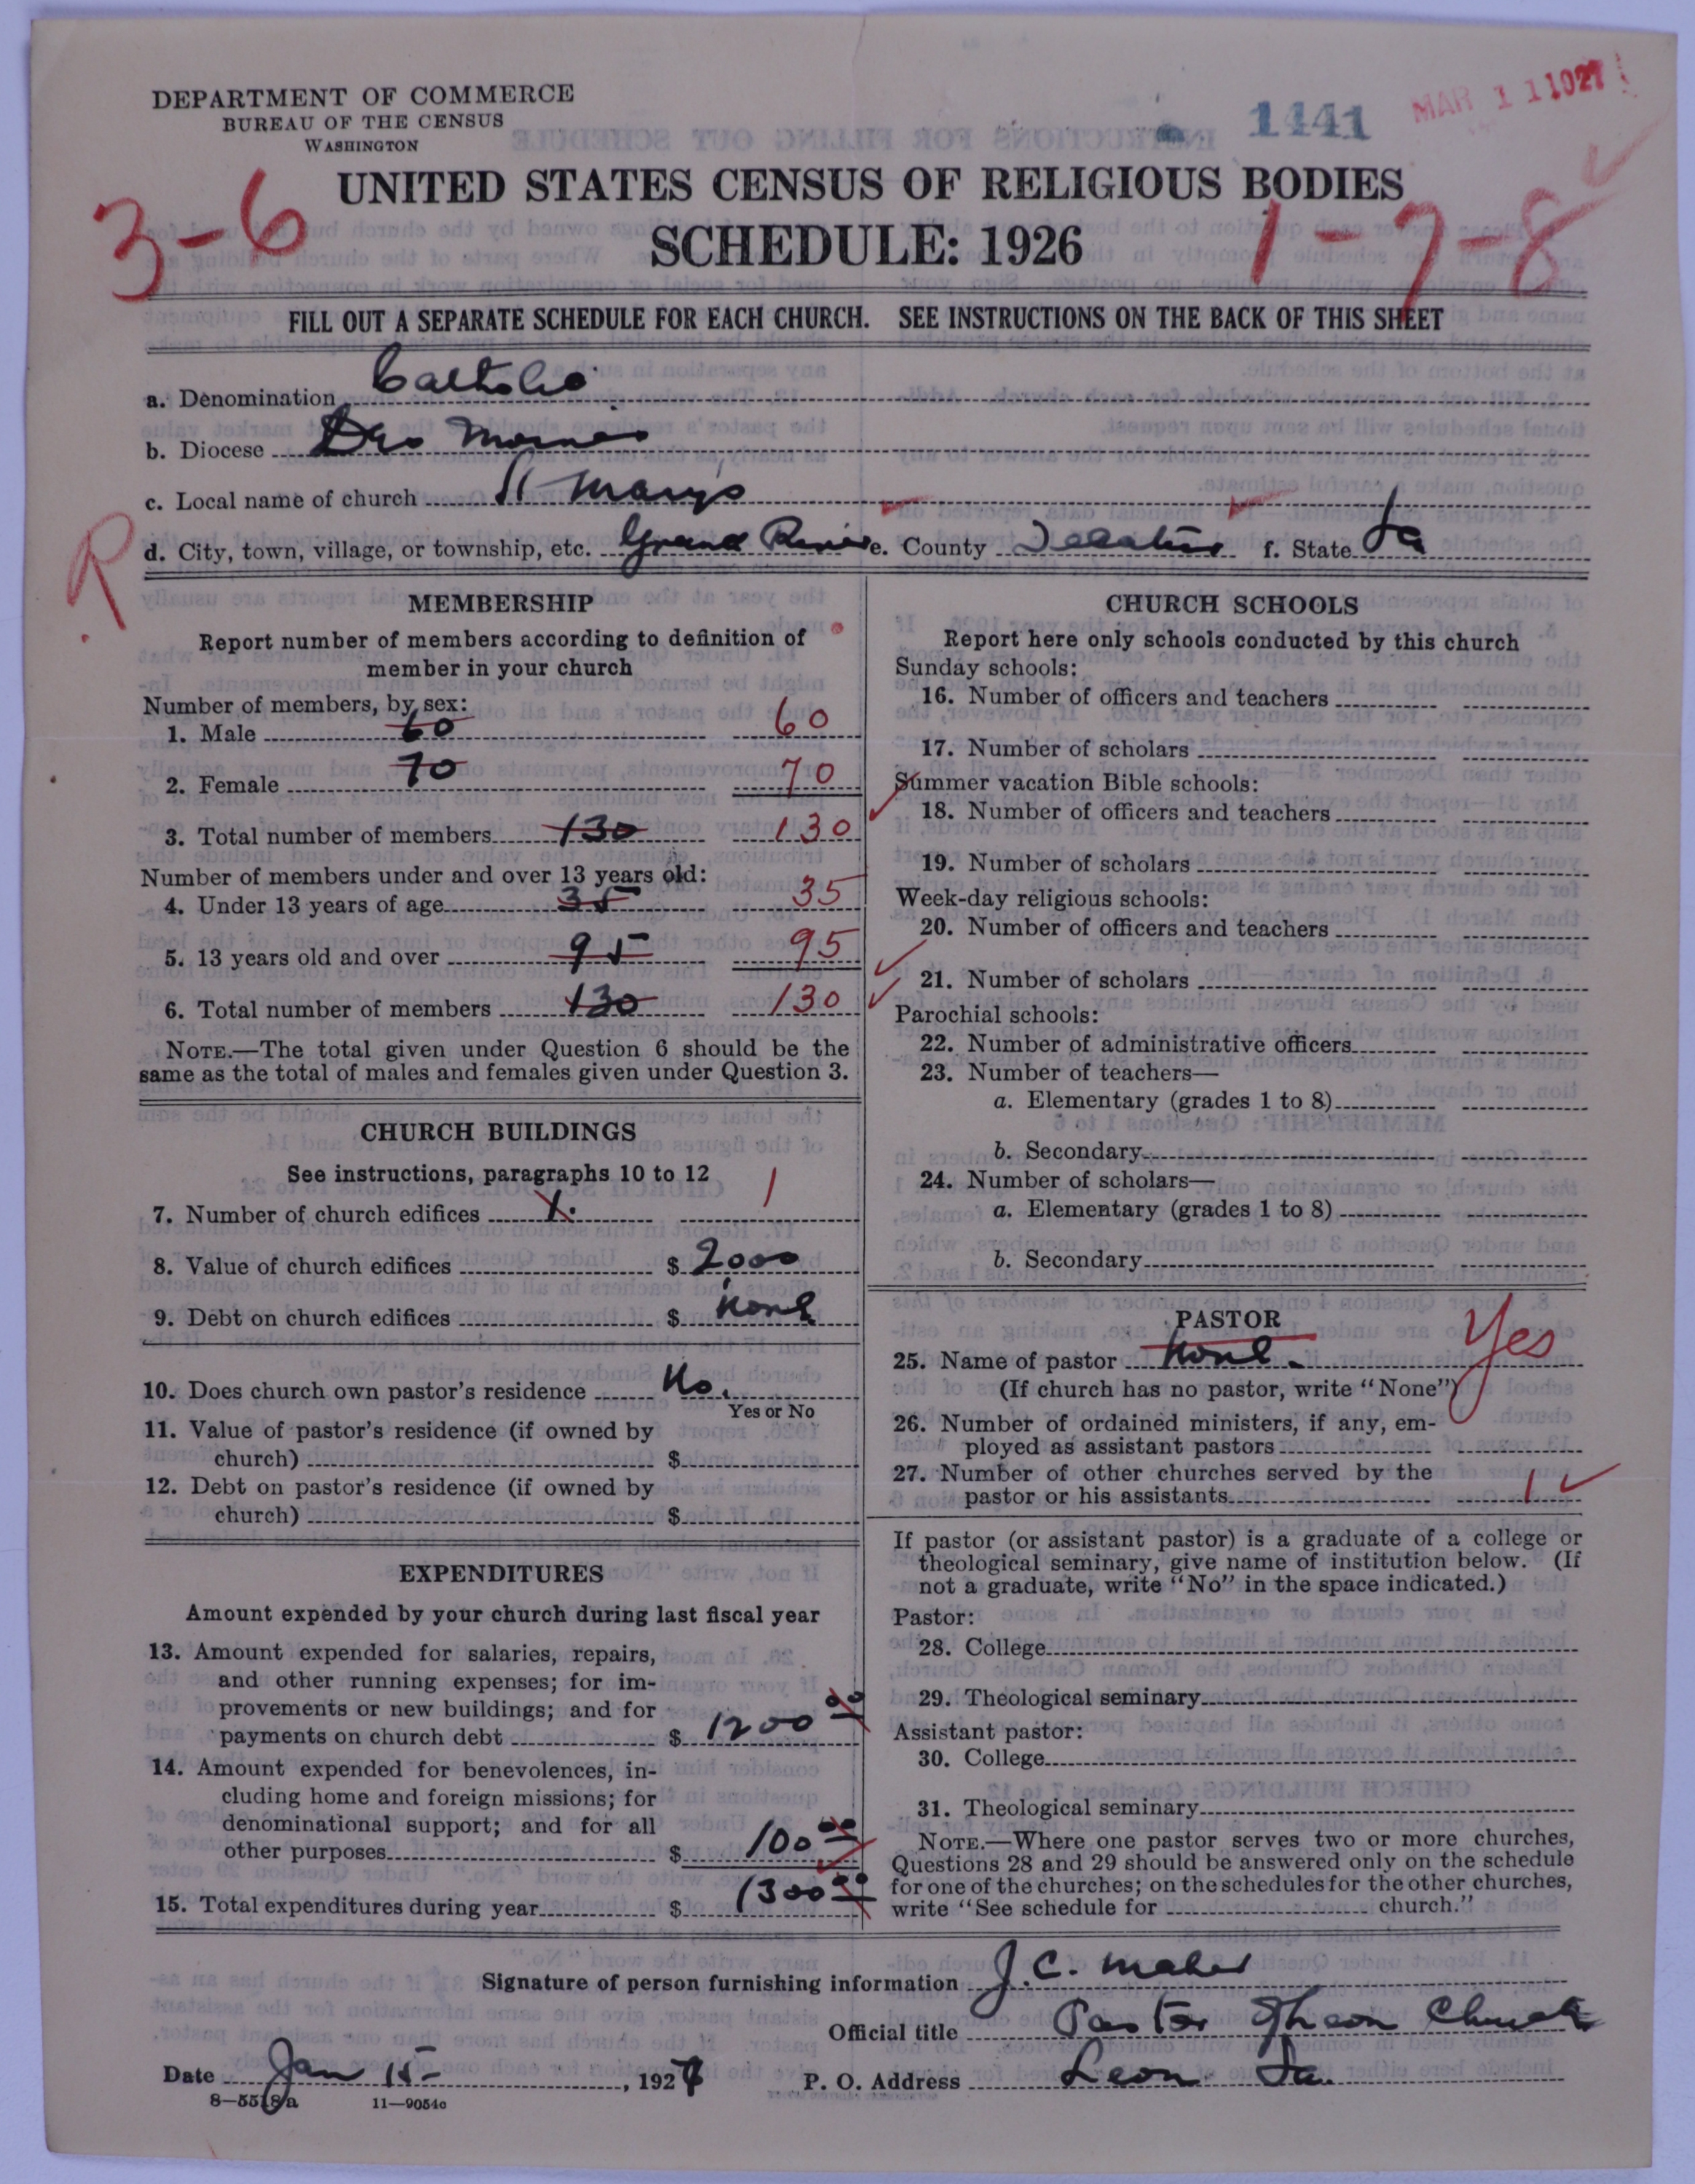 DEPARTMENT OF COMMERCE
BUREAU OF THE CENSUS
WASHINGTON
1441
MAR 1 1 1927
UNITED STATES CENSUS OF RELIGIOUS BODIES
3-6
SCHEDULE: 1926
1-7-8
FILL OUT A SEPARATE SCHEDULE FOR EACH CHURCH. SEE INSTRUCTIONS ON THE BACK OF THIS SHEET
a. Denomination Catholic
b. Diocese Des Moines
c. Local name of church St Marys
R
d. City, town, village, or township, etc. Grand River e. County Decatur f. State Ia
MEMBERSHIP
Report number of members according to definition of
member in your church
Number of members, by sex:
1. Male 60 60
2. Female 70 70
3. Total number of members 130 130
Number of members under and over 13 years old:
4. Under 13 years of age 35 35
5. 13 years old and over 95 95
6. Total number of members 130 130
NOTE.—The total given under Question 6 should be the
same as the total of males and females given under Question 3.
CHURCH BUILDINGS
See instructions, paragraphs 10 to 12
7. Number of church edifices 1. 1
8. Value of church edifices $ 2,000
9. Debt on church edifices $ none
10. Does church own pastor's residence No.
Yes or No
11. Value of pastor's residence (if owned by
church) $
12. Debt on pastor's residence (if owned by
church) $
EXPENDITURES
Amount expended by your church during last fiscal year
13. Amount expended for salaries, repairs,
and other running expenses; for im-
provements or new buildings; and for
payments on church debt $ 1200 00
14. Amount expended for benevolences, in-
cluding home and foreign missions; for
denominational support; and for all
other purposes $ 100 00
15. Total expenditures during year $ 1300 00
CHURCH SCHOOLS
Report here only schools conducted by this church
Sunday schools:
16. Number of officers and teachers
17. Number of scholars
Summer vacation Bible schools:
18. Number of officers and teachers
19. Number of scholars
Week-day religious schools:
20. Number of officers and teachers
21. Number of scholars
Parochial schools:
22. Number of administrative officers
23. Number of teachers—
a. Elementary (grades 1 to 8)
b. Secondary
24. Number of scholars—
a. Elementary (grades 1 to 8)
b. Secondary
PASTOR
25. Name of pastor None. Yes
(If church has no pastor, write "None")
26. Number of ordained ministers, if any, em-
ployed as assistant pastors
27. Number of other churches served by the
pastor or his assistants 1
If pastor (or assistant pastor) is a graduate of a college or
theological seminary, give name of institution below. (If
not a graduate, write "No" in the space indicated.)
Pastor:
28. College
29. Theological seminary
Assistant pastor:
30. College
31. Theological seminary
NOTE.—Where one pastor serves two or more churches,
Questions 28 and 29 should be answered only on the schedule
for one of the churches; on the schedules for the other churches,
write "See schedule for church."
Signature of person furnishing information J.C. Maher
Official title Pastor Church
Date Jan 15- , 1927 P. O. Address Leon Ia.
8—5518a 11—9054c